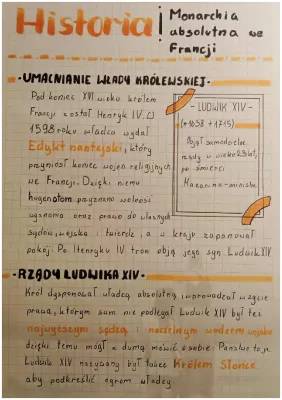 Historia
Monarchia
absolutna we
Francji
-UMACNIANIE WŁADY KRÓLEWSKIEJ-
Pod koniec XVI wieku królem
Francji został Henryk IV. W
1598 roku władca wydał
Edykt nantejski, który
przyniósł koniec wojen religijnych
we Francji. Dzięki niemu
hugenotom przyznano wolność
wyznania oraz prawo do własnych
sądów, wojska i twierdz, a w kraju zapanował
pokój. Po Henryku IV tron objął jego syn Ludwik XIV
- LUDWIK XIV -
(*1638 +1715)
Objął samodzielne
rządy w wieku 23 lat,
po śmierci
Mazarina-ministra
-RZĄDY LUDWIKA XIV-
Król dysponował władzą absolutną wprowadzał w życie
prawa, którym sam nie podlegał Ludwik XIV był też
najwyższym sędzią i naczelnym wodzem wojska
dzięki temu mógł z dumą mówić o sobie: Państwo to ja.
Ludwik XIV nazywany był także Królem Słońce
aby podkreślić ogrom władzy